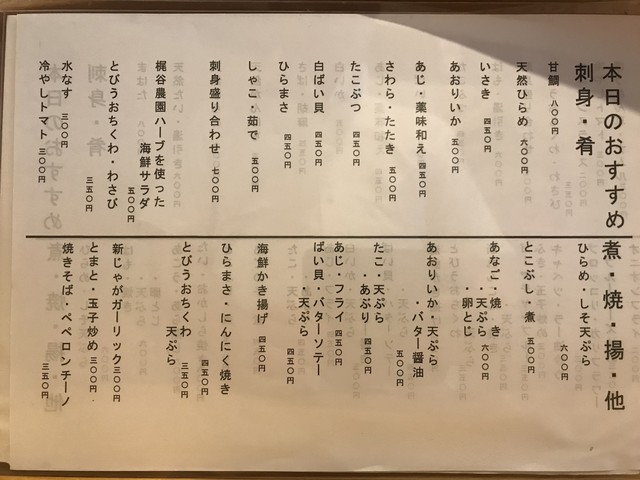 本日のおすすめ
刺身・肴
甘鯛 八〇〇円
天然ひらめ 六〇〇円
いさき 四五〇円
あおりいか 五〇〇円
あじ・薬味和え 四五〇円
さわら・たたき 五〇〇円
たこぶつ 四五〇円
白ばい貝 四五〇円
ひらまさ 四五〇円
しゃこ・茹で 五〇〇円
刺身盛り合わせ 七〇〇円
梶谷農園ハーブを使った
海鮮サラダ 五〇〇円
とびうおちくわ・わさび 三五〇円
水なす 三〇〇円
冷やしトマト 三〇〇円
煮・焼・揚・他
ひらめ・しそ天ぷら 六〇〇円
とこぶし・煮 五〇〇円
あなご・焼き
・天ぷら 六〇〇円
・卵とじ
あおりいか・天ぷら
・バター醤油 五〇〇円
たこ・天ぷら
・あぶり 四五〇円
あじ・フライ 四五〇円
ばい貝・バターソテー
・天ぷら 四五〇円
海鮮かき揚げ 四五〇円
ひらまさ・にんにく焼き 四五〇円
とびうおちくわ
天ぷら 三五〇円
新じゃがガーリック 三〇〇円
とまと・玉子炒め 三〇〇円
焼きそば・ペペロンチーノ 三五〇円